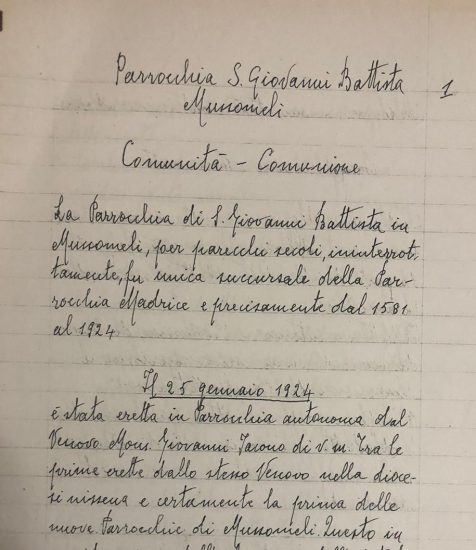 Parrocchia S. Giovanni Battista
1
Mussomeli
Comunità - Comunione
La Parrocchia di S. Giovanni Battista in
Mussomeli, per parecchi secoli, ininterrot-
tamente, fu unica succursale della Par-
rocchia Madrice e precisamente dal 1581
al 1924
Il 25 gennaio 1924
è stata eretta in Parrocchia autonoma dal
Vescovo Mons. Giovanni Jacono di v. m. Tra le
prime erette dallo stesso Vescovo nella dioce-
si nissena e certamente la prima delle
nuove Parrocchie di Mussomeli. Questo in